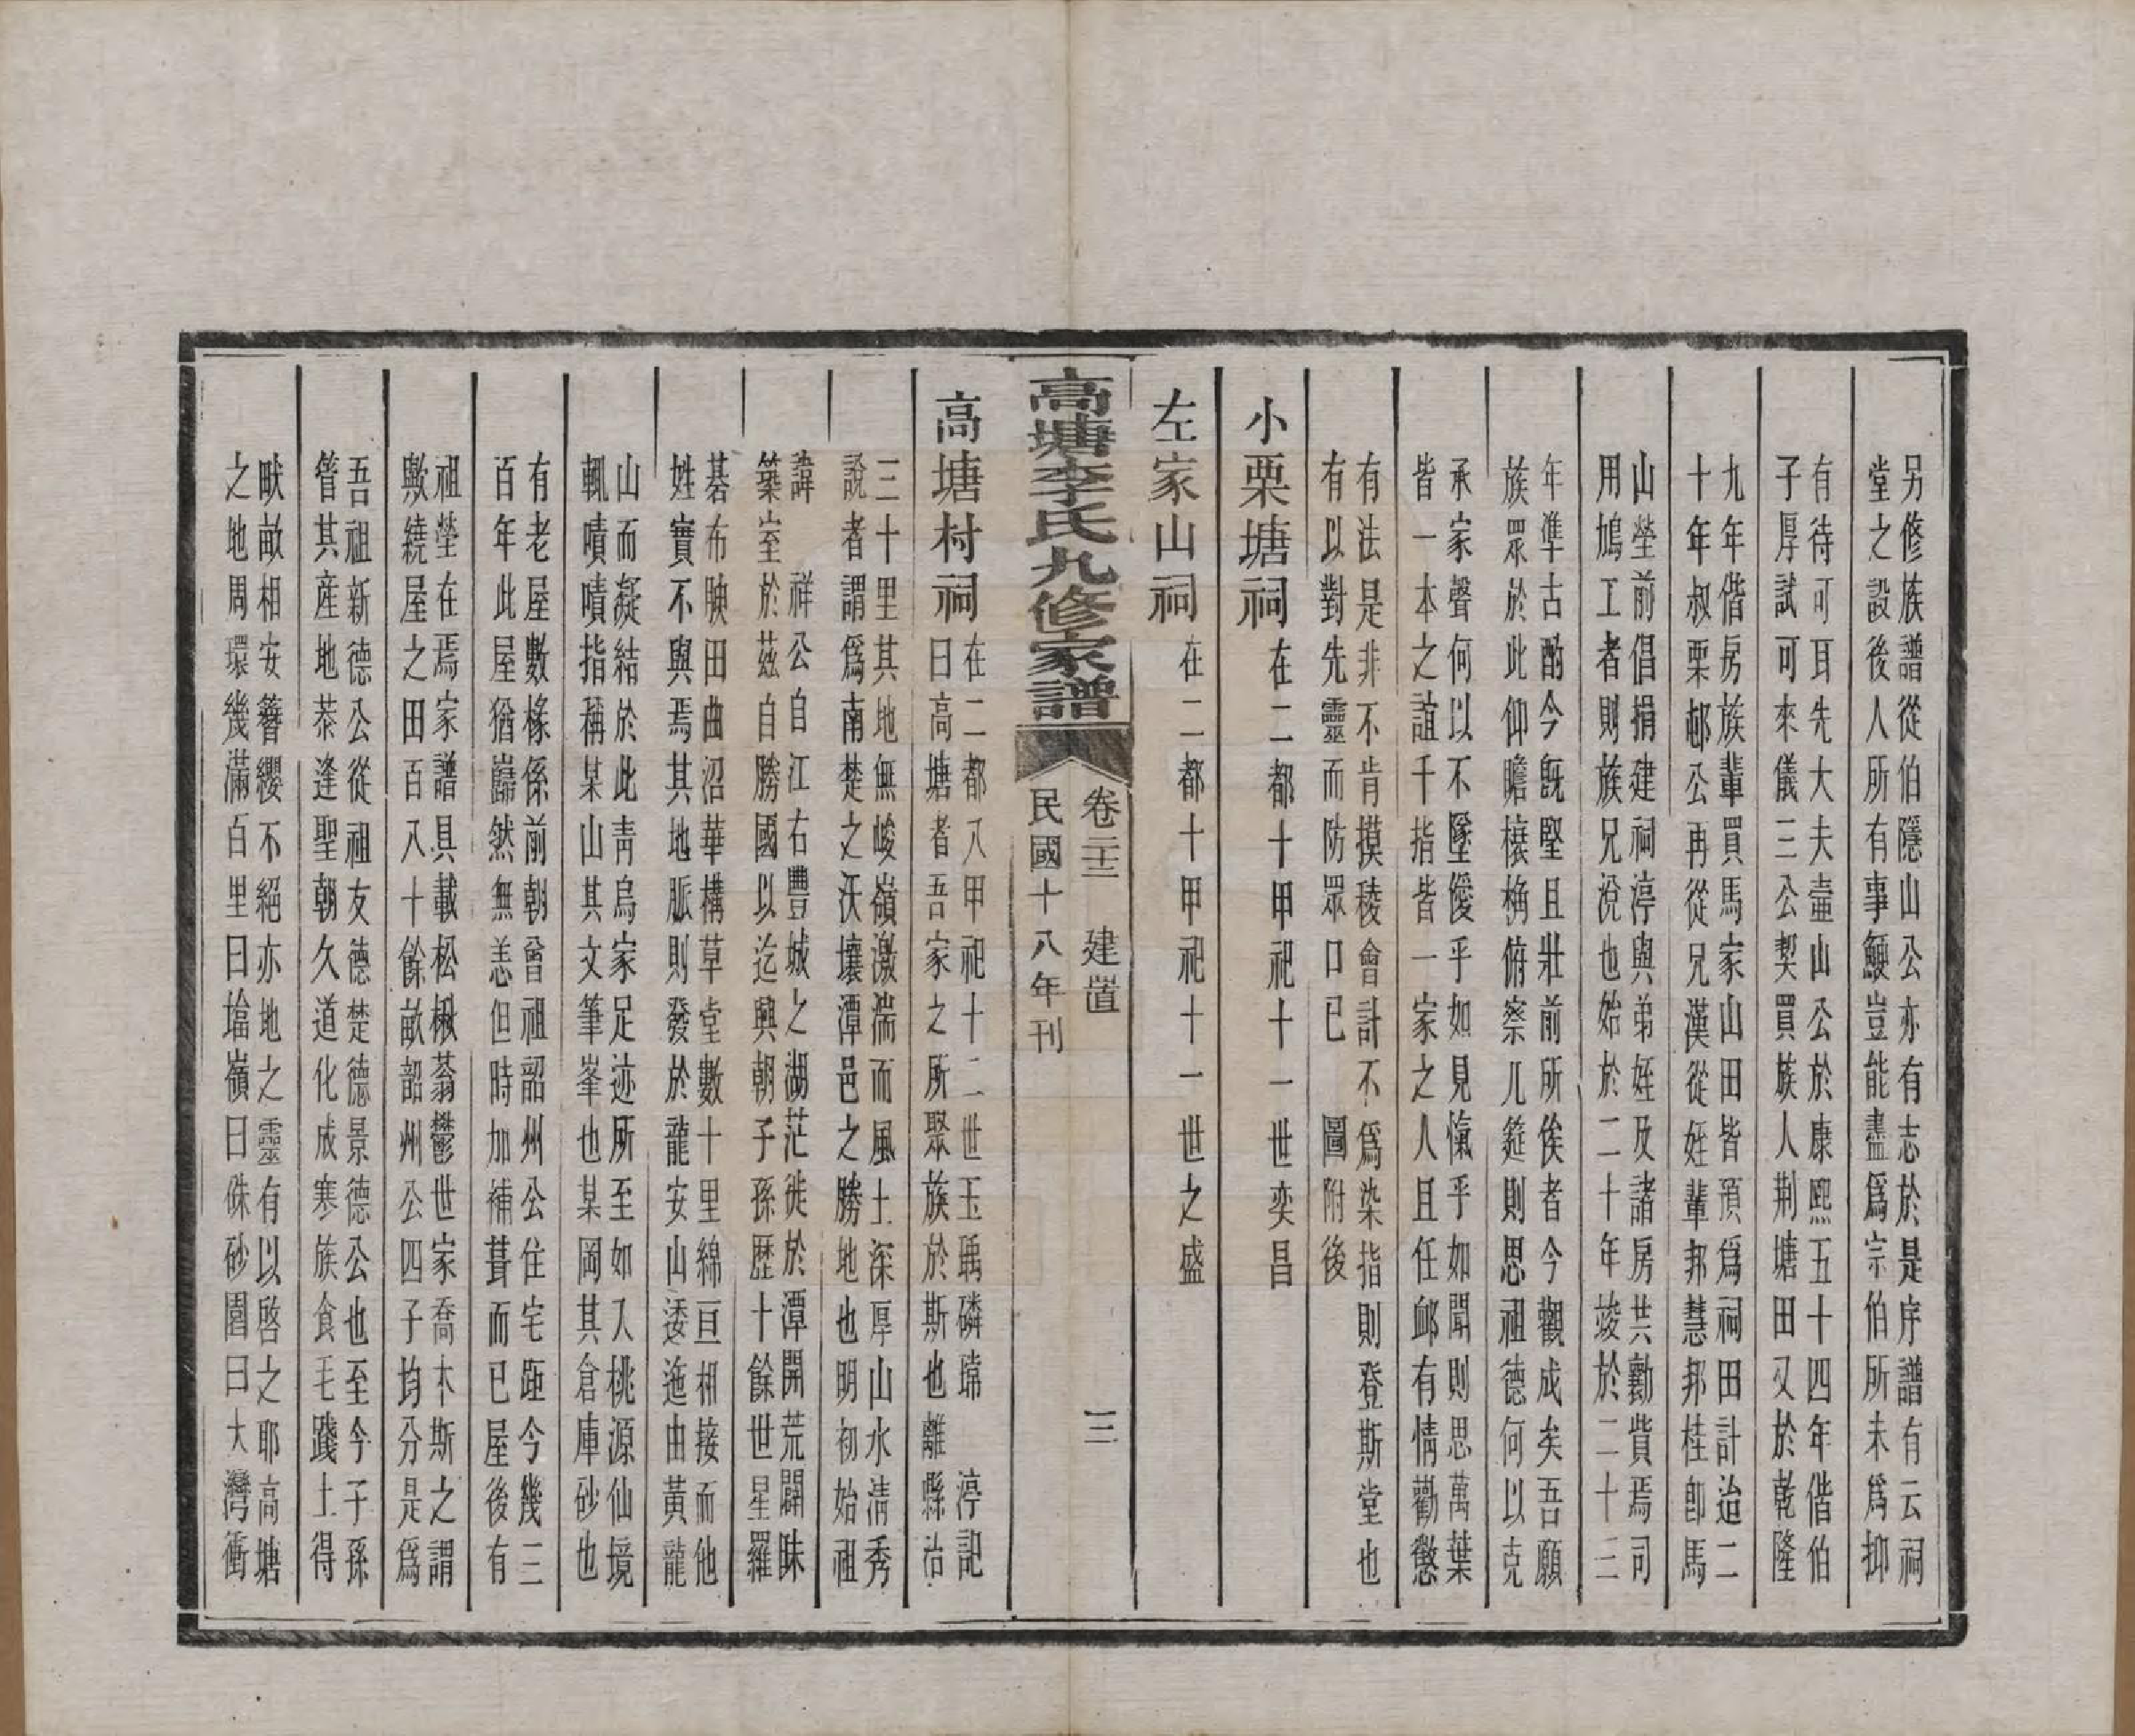 另修族譜從伯隱山公亦有志於是序譜有云祠
堂之設後人所有事鯁豈能盡爲宗伯所未爲抑
有待可耳先大夫壼山公於康熙五十四年偕伯
子厚試可來儀三公契買族人荆塘田又於乾隆
九年偕房族輩買馬家山田皆預爲祠田計迨二
十年叔栗邨公再從兄漢從姪輩邦慧邦桂卽馬
山塋前倡捐建祠渟與弟姪及諸房共勷貲焉司
用鳩工者則族兄說也始於二十年竣於二十三
年準古酌今旣堅且壯前所俟者今觀成矣吾願
族眾於此仰瞻榱桷俯察几筵則思祖德何以克
承家聲何以不墜僾乎如見愾乎如聞則思萬葉
皆一本之誼千指皆一家之人且任卹有情勸懲
有法是非不肯摸稜會計不爲染指則登斯堂也
有以對先靈而防眾口已　圖附後
小栗塘祠在二都十甲祀十一世奕昌
左家山祠在二都十甲祀十一世之盛
高塘李氏九修家譜
卷二十三　建置　三
民國十八年刊
高塘村祠在二都八甲祀十二世玉瑀磷瑺　渟記
曰高塘者吾家之所聚族於斯也離縣治
三十里其地無峻嶺激湍而風土深厚山水清秀
說者謂爲南楚之沃壤潭邑之勝地也明初始祖
諱　祥公自江右豐城之湖茫徙於潭開荒闢昧
築室於茲自勝國以迄興朝子孫歷十餘世星羅
碁布腴田曲沼華構草堂數十里綿亘相接而他
姓實不與焉其地脈則發於龍安山逶迤由黃龍
山而凝結於此青烏家足迹所至如入桃源仙境
輒嘖嘖指稱某山其文筆峯也某岡其倉庫砂也
有老屋數椽係前朝曾祖韶州公住宅距今幾三
百年此屋猶巋然無恙但時加補葺而已屋後有
祖塋在焉家譜具載松楸蓊鬱世家喬木斯之謂
歟繞屋之田百八十餘畝韶州公四子均分是爲
吾祖新德公從祖友德楚德景德公也至今子孫
管其産地恭逢聖朝久道化成寒族食毛踐土得
畎畝相安簪纓不絕亦地之靈有以啓之耶高塘
之地周環幾滿百里曰壋嶺曰硃砂園曰大灣衝